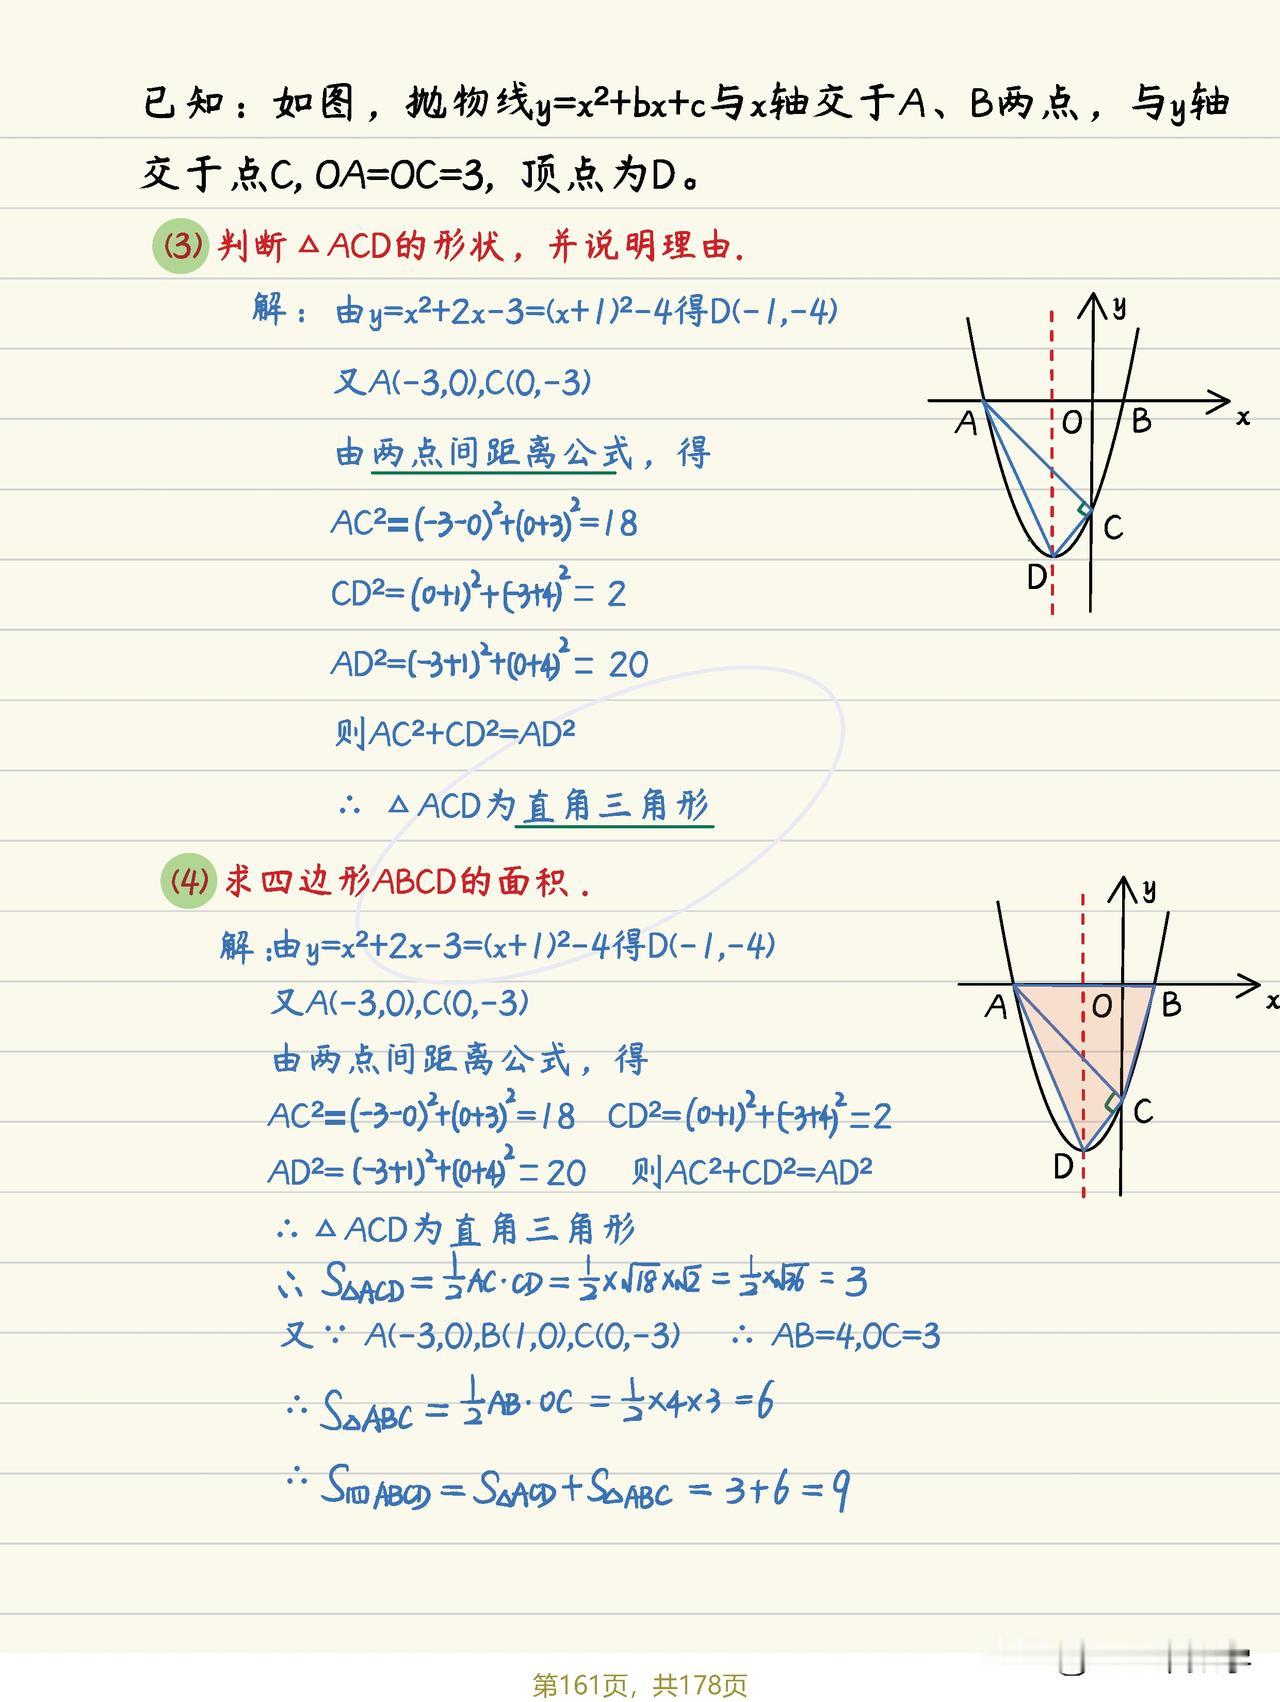 已知：如图，抛物线y=x²+bx+c与x轴交于A、B两点，与y轴
交于点C, OA=OC=3, 顶点为D。
(3) 判断△ACD的形状，并说明理由.
解：由y=x²+2x-3=(x+1)²-4得D(-1,-4)
又A(-3,0),C(0,-3)
由两点间距离公式，得
AC²=(-3-0)²+(0+3)²=18
CD²=(0+1)²+(-3+4)²=2
AD²=(-3+1)²+(0+4)²=20
则AC²+CD²=AD²
∴ △ACD为直角三角形
y
A
O
B
x
C
D
(4) 求四边形ABCD的面积.
解:由y=x²+2x-3=(x+1)²-4得D(-1,-4)
又A(-3,0),C(0,-3)
由两点间距离公式，得
AC²=(-3-0)²+(0+3)²=18 CD²=(0+1)²+(-3+4)²=2
AD²=(-3+1)²+(0+4)²=20 则AC²+CD²=AD²
∴ △ACD为直角三角形
∴ S△ACD=1/2AC·CD=1/2×√18×√2=1/2×√36=3
又∵ A(-3,0),B(1,0),C(0,-3) ∴ AB=4,OC=3
∴ S△ABC=1/2AB·OC=1/2×4×3=6
∴ S四ABCD=S△ACD+S△ABC=3+6=9
y
A
O
B
x
C
D
第161页，共178页